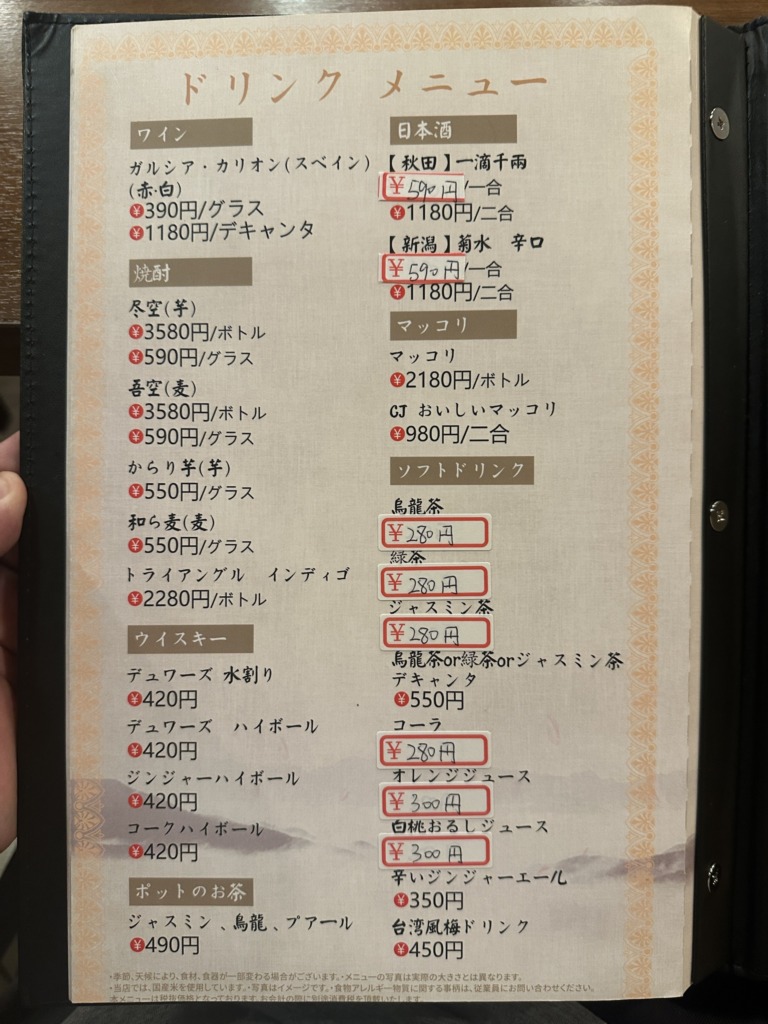 ドリンク メニュー
ワイン
ガルシア・カリオン(スペイン)
(赤·白)
¥390円/グラス
¥1180円/デキャンタ
焼酎
尽空(芋)
¥3580円/ボトル
¥590円/グラス
吾空(麦)
¥3580円/ボトル
¥590円/グラス
からり芋(芋)
¥550円/グラス
和ら麦(麦)
¥550円/グラス
トライアングル インディゴ
¥2280円/ボトル
ウイスキー
デュワーズ 水割り
¥420円
デュワーズ ハイボール
¥420円
ジンジャーハイボール
¥420円
コークハイボール
¥420円
ポットのお茶
ジャスミン、烏龍、プアール
¥490円
日本酒
【秋田】一滴千両
¥590円/一合
¥1180円/二合
【新潟】菊水 辛口
¥590円/一合
¥1180円/二合
マッコリ
マッコリ
¥2180円/ボトル
CJ おいしいマッコリ
¥980円/二合
ソフトドリンク
烏龍茶
¥280円
緑茶
¥280円
ジャスミン茶
¥280円
烏龍茶or緑茶orジャスミン茶
デキャンタ
¥550円
コーラ
¥280円
オレンジジュース
¥300円
白桃おるしジュース
¥300円
辛いジンジャーエール
¥350円
台湾風梅ドリンク
¥450円
·季節、天候により、食材、食器が一部変わる場合がございます。·メニューの写真は実際の大きさとは異なります。
·当店では、国産米を使用しています。·写真はイメージです。·食物アレルギー物質に関する事柄は、従業員にお問い合わせください。
本メニューは税抜価格となっております。お会計の際に別途消費税を頂戴いたします。